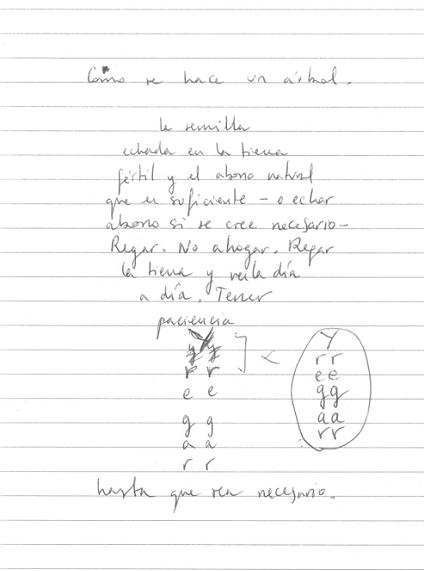 Cómo se hace un árbol.
la semilla
echada en la tierra
fértil y el abono natural
que es suficiente – o echar
abono si se cree necesario –
Regar. No ahogar. Regar
la tierra y verla día
a día. Tener
paciencia
Y
r r
e e
g g
a a
r r
<
Y
r r
e e
g g
a a
r r
hasta que sea necesario.